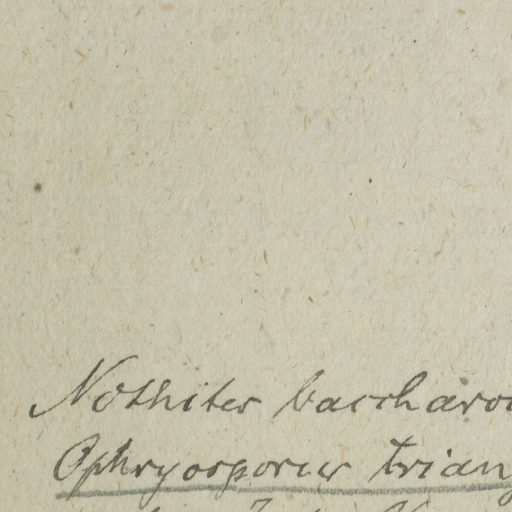 Nothites baccharoi
Ophryosporus triang